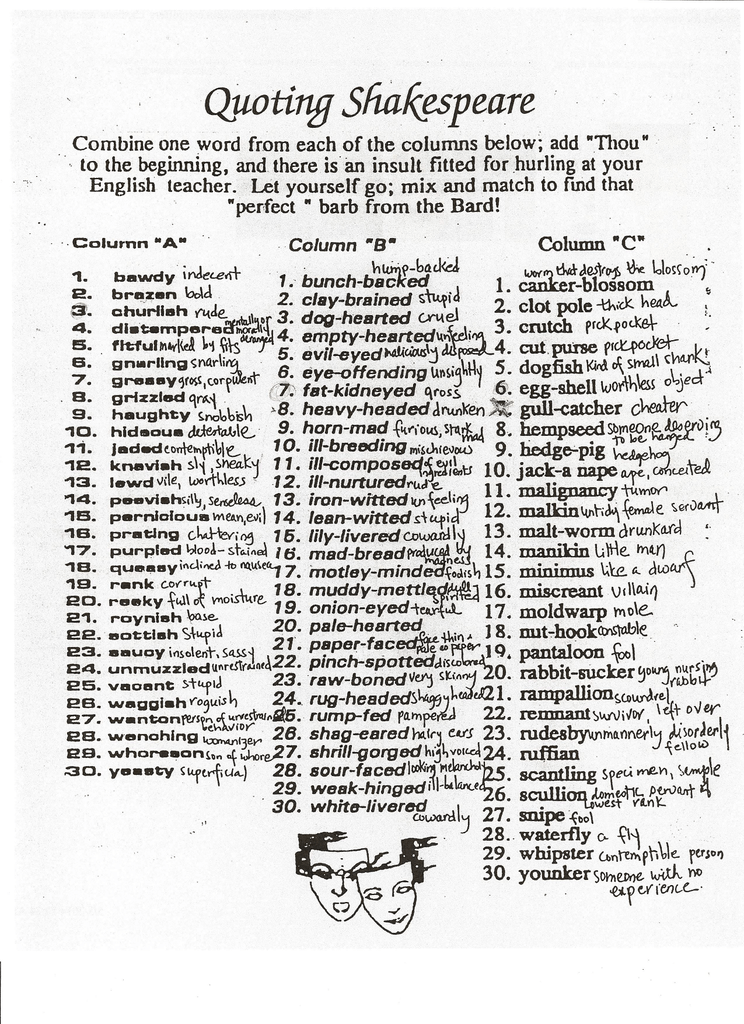 Quoting Shakespeare
Combine one word from each of the columns below; add "Thou"
to the beginning, and there is an insult fitted for hurling at your
English teacher. Let yourself go; mix and match to find that
"perfect " barb from the Bard!
Column "A"
1. bawdy indecent
2. brazen bold
3. churlish rude
4. distempered mentally or morally deranged
5. fitful marked by fits
6. gnarling snarling
7. greasy gross, corpulent
8. grizzled gray
9. haughty snobbish
10. hideous detestable
11. jaded contemptible
12. knavish sly, sneaky
13. lewd vile, worthless
14. peevish silly, senseless
15. pernicious mean, evil
16. prating chattering
17. purpled blood-stained
18. queasy inclined to nausea
19. rank corrupt
20. reeky full of moisture
21. roynish base
22. sottish stupid
23. saucy insolent, sassy
24. unmuzzled unrestrained
25. vacant stupid
26. waggish roguish
27. wanton person of unrestrained behavior
28. wenching womanizer
29. whoreson son of whore
30. yeasty superficial
Column "B"
hump-backed
1. bunch-backed
2. clay-brained stupid
3. dog-hearted cruel
4. empty-hearted unfeeling
5. evil-eyed maliciously disposed
6. eye-offending unsightly
7. fat-kidneyed gross
8. heavy-headed drunken
9. horn-mad furious, stark mad
10. ill-breeding mischievous
11. ill-composed of evil ingredients
12. ill-nurtured rude
13. iron-witted unfeeling
14. lean-witted stupid
15. lily-livered cowardly
16. mad-bread produced by madness
17. motley-minded foolish
18. muddy-mettled dull spirited
19. onion-eyed tearful
20. pale-hearted
21. paper-faced face thin & pale as paper
22. pinch-spotted discolored
23. raw-boned very skinny
24. rug-headed shaggy headed
25. rump-fed pampered
26. shag-eared hairy ears
27. shrill-gorged high voiced
28. sour-faced looking melancholy
29. weak-hinged ill-balanced
30. white-livered
cowardly
Column "C"
worm that destroys the blossom
1. canker-blossom
2. clot pole thick head
3. crutch pickpocket
4. cut purse pickpocket
5. dogfish kind of small shark
6. egg-shell worthless object
7. gull-catcher cheater
8. hempseed someone deserving to be hanged
9. hedge-pig hedgehog
10. jack-a nape ape, conceited
11. malignancy tumor
12. malkin untidy female servant
13. malt-worm drunkard
14. manikin little man
15. minimus like a dwarf
16. miscreant villain
17. moldwarp mole
18. nut-hook constable
19. pantaloon fool
20. rabbit-sucker young nursing rabbit
21. rampallion scoundrel
22. remnant survivor, left over
23. rudesby unmannerly disorderly fellow
24. ruffian
25. scantling specimen, sample
26. scullion domestic servant of lowest rank
27. snipe fool
28. waterfly a fly
29. whipster contemptible person
30. younker someone with no
experience.